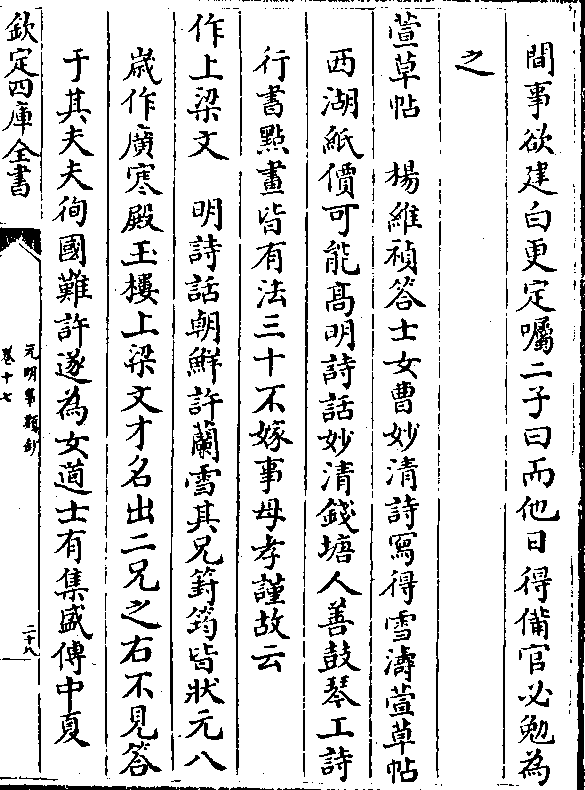 間事欲建白更定囑二子曰而他日得備官必勉為
之
萱草帖　楊維禎答士女曹妙清詩寫得雪濤萱草帖
西湖紙價可能髙明詩話妙清錢塘人善鼓琴工詩
行書點畫皆有法三十不嫁事母孝謹故云
作上梁文　明詩話朝鮮許蘭雪其兄篈筠皆狀元八
嵗作廣寒殿玉樓上梁文才名出二兄之右不見答
于其夫夫徇國難許遂為女道士有集盛傳中夏
欽定四庫全書
元明事類鈔
卷十七
二十八